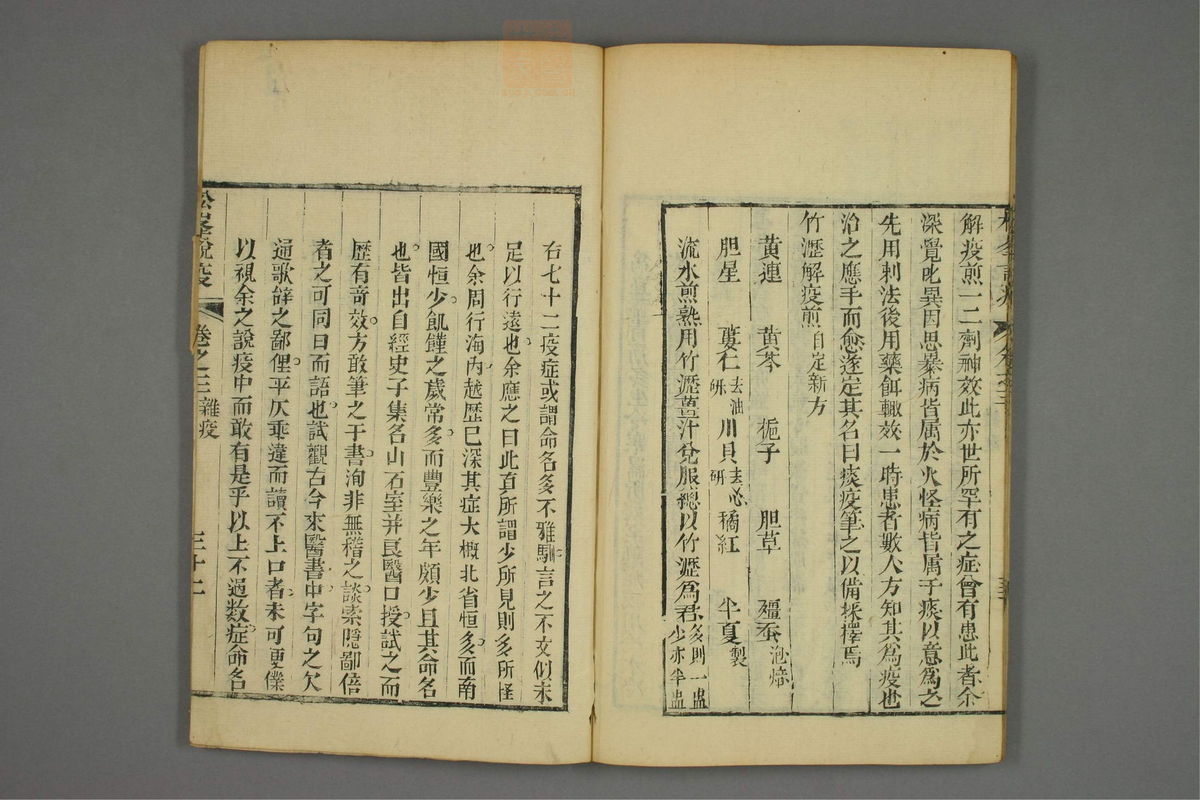 解疫煎一二劑神效此亦世所罕有之症曾有患此者余
深覺叱異因思暴病皆属於火怪病皆属于痰以意為之
先用刺法後用藥餌輙效一時患者數人方知其為疫也
治之應手而愈遂定其名曰痰疫筆之以備採擇焉
竹瀝解疫煎自定新方
黄連 黄芩 梔子 胆草 殭蚕泡焙
胆星 蔞仁去油研 川貝去心研 橘紅 半夏製
流水煎熟用竹瀝薑汁兌服總以竹瀝為君多則一盅少亦半盅
右七十二疫症或謂命名多不雅馴言之不文似未
足以行遠也余應之曰此直所謂少所見則多所怪
也余周行海内越歷已深其症大概北省恒多而南
國恒少飢饉之歲常多而豐樂之年頗少且其命名
也皆出自經史子集名山石室并良醫口授試之而
歷有奇效方敢筆之于書洵非無稽之談索隠鄙倍
者之可同日而語也試觀古今來醫書中字句之欠
通歌辞之鄙俚平仄乖違而讀不上口者未可更僕
以視余之說疫中而敢有是乎以上不過数症命名
松峯說疫 卷之三雜疫 三十二